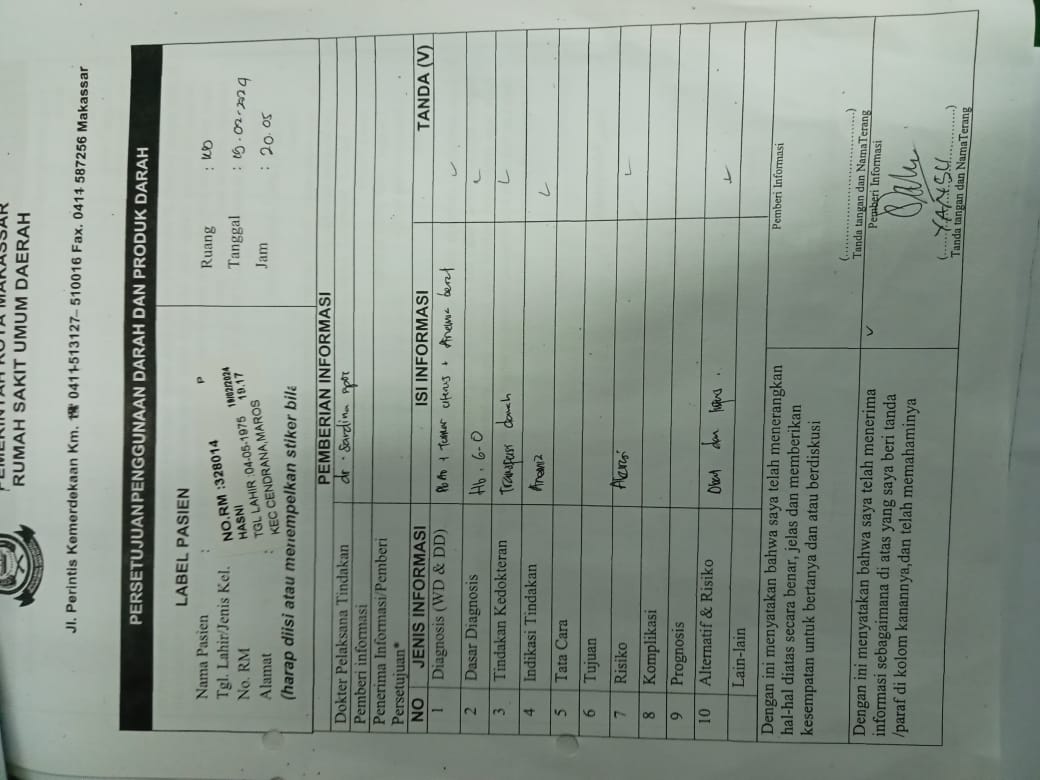 PEMERINTAH KOTA MAKASSAR
RUMAH SAKIT UMUM DAERAH
Jl. Perintis Kemerdekaan Km. 0411-513127– 510016 Fax. 0411 587256 Makassar
PERSETUJUANPENGGUNAAN DARAH DAN PRODUK DARAH
LABEL PASIEN
Nama Pasien : P
Tgl. Lahir/Jenis Kel.
No. RM
Alamat :
NO.RM :328014 19/02/2024
HASNI 19.17
TGL LAHIR :04-05-1975
KEC CENDRANA,MAROS
(harap diisi atau menempelkan stiker bila
Ruang :
Tanggal : 19.02.2024
Jam : 20.05
PEMBERIAN INFORMASI
Dokter Pelaksana Tindakan dr. Sardina
Pemberi informasi
Penerima Informasi/Pemberi
Persetujuan*
NO JENIS INFORMASI ISI INFORMASI TANDA (V)
1 Diagnosis (WD & DD) tumor uterus + Anemia berat ✓
2 Dasar Diagnosis Hb. 6.0 ✓
3 Tindakan Kedokteran Transpusi darah ✓
4 Indikasi Tindakan Anemia ✓
5 Tata Cara
6 Tujuan
7 Risiko Alergi ✓
8 Komplikasi
9 Prognosis
10 Alternatif & Risiko Obat dan ✓
Lain-lain
Dengan ini menyatakan bahwa saya telah menerangkan
hal-hal diatas secara benar, jelas dan memberikan
kesempatan untuk bertanya dan atau berdiskusi
Pemberi Informasi
(..............................)
Tanda tangan dan NamaTerang
Dengan ini menyatakan bahwa saya telah menerima
informasi sebagaimana di atas yang saya beri tanda
/paraf di kolom kanannya,dan telah memahaminya
✓
Pemberi Informasi
(.....YANSU..........)
Tanda tangan dan NamaTerang